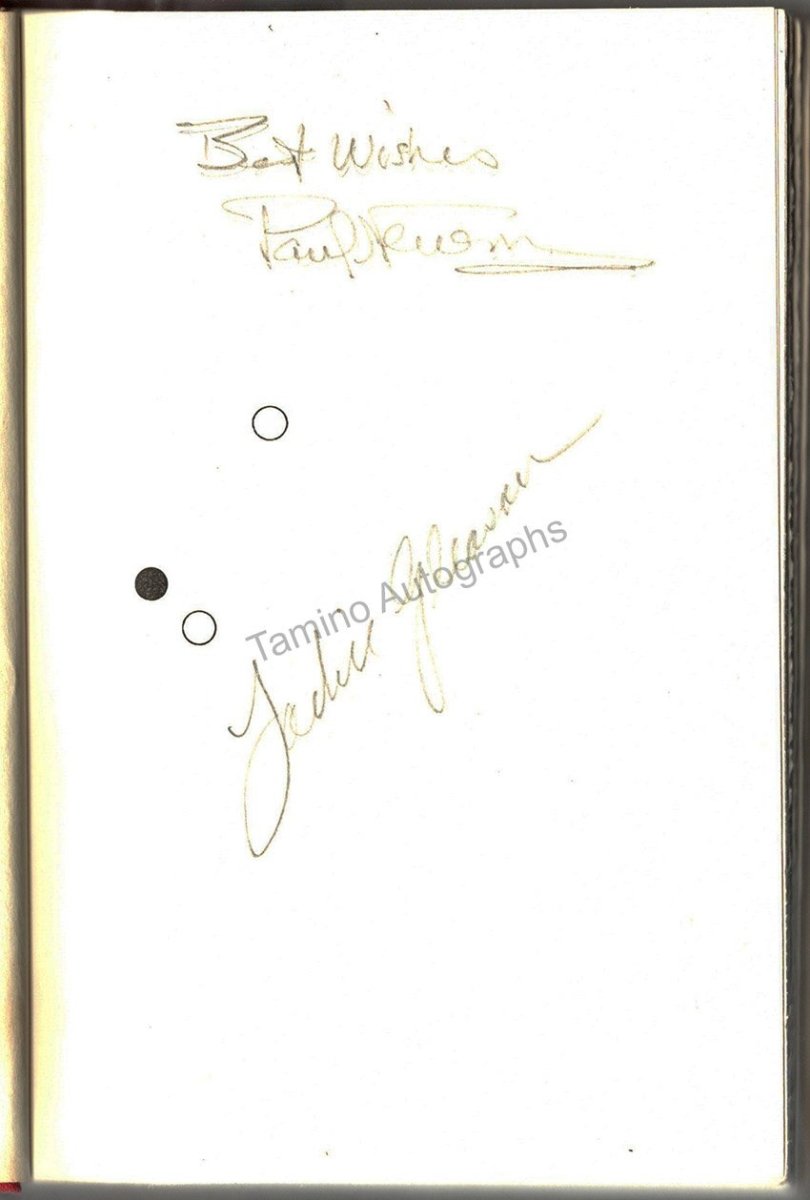 Best Wishes
Paul Newman
Jackie Gleason
Tamino Autographs